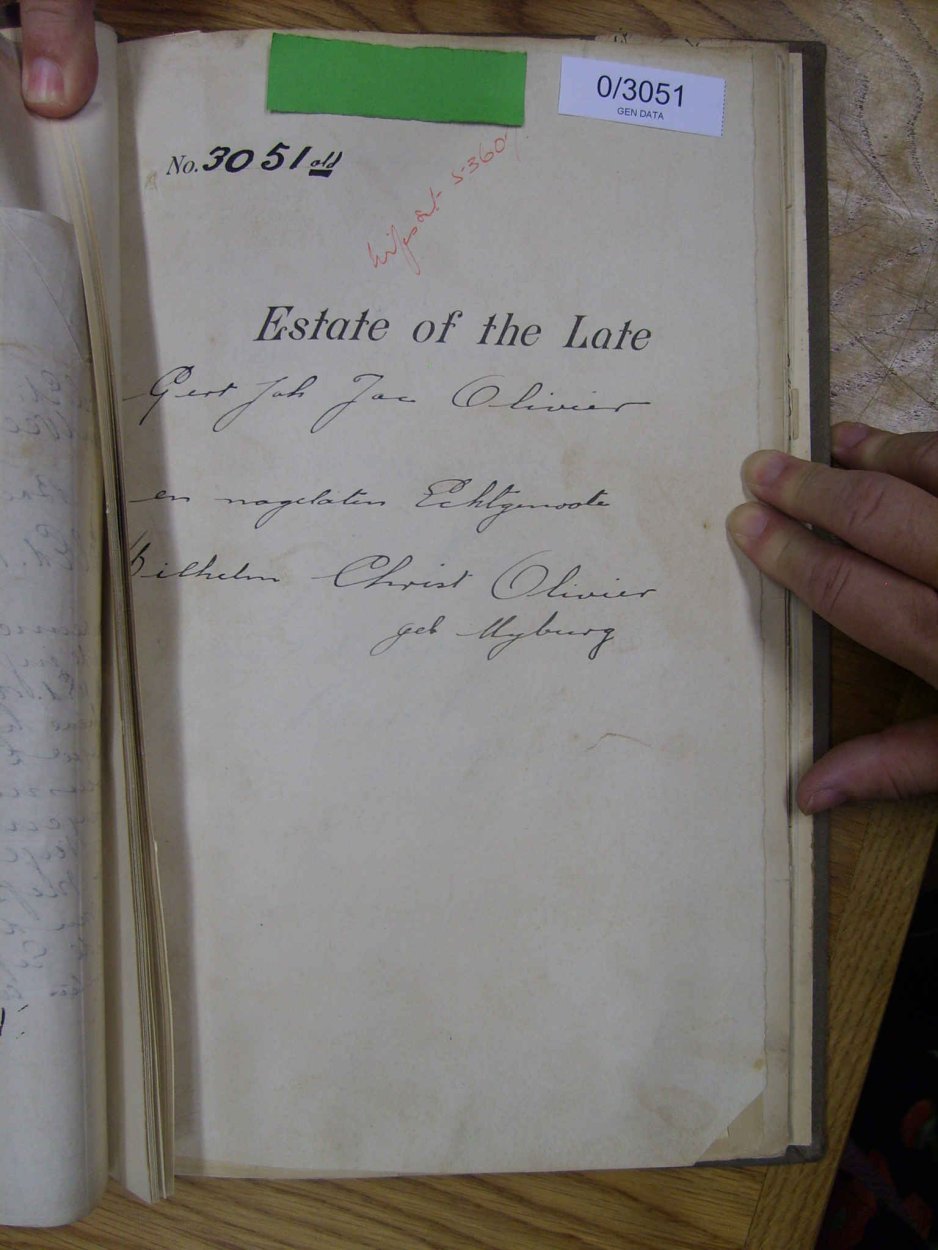 0/3051
GEN DATA
No. 3051 old
5360
Estate of the Late
Gert Joh Jac Olivier
en nagelaten Echtgenoote
Wilhelm Christ Olivier
geb Myburg